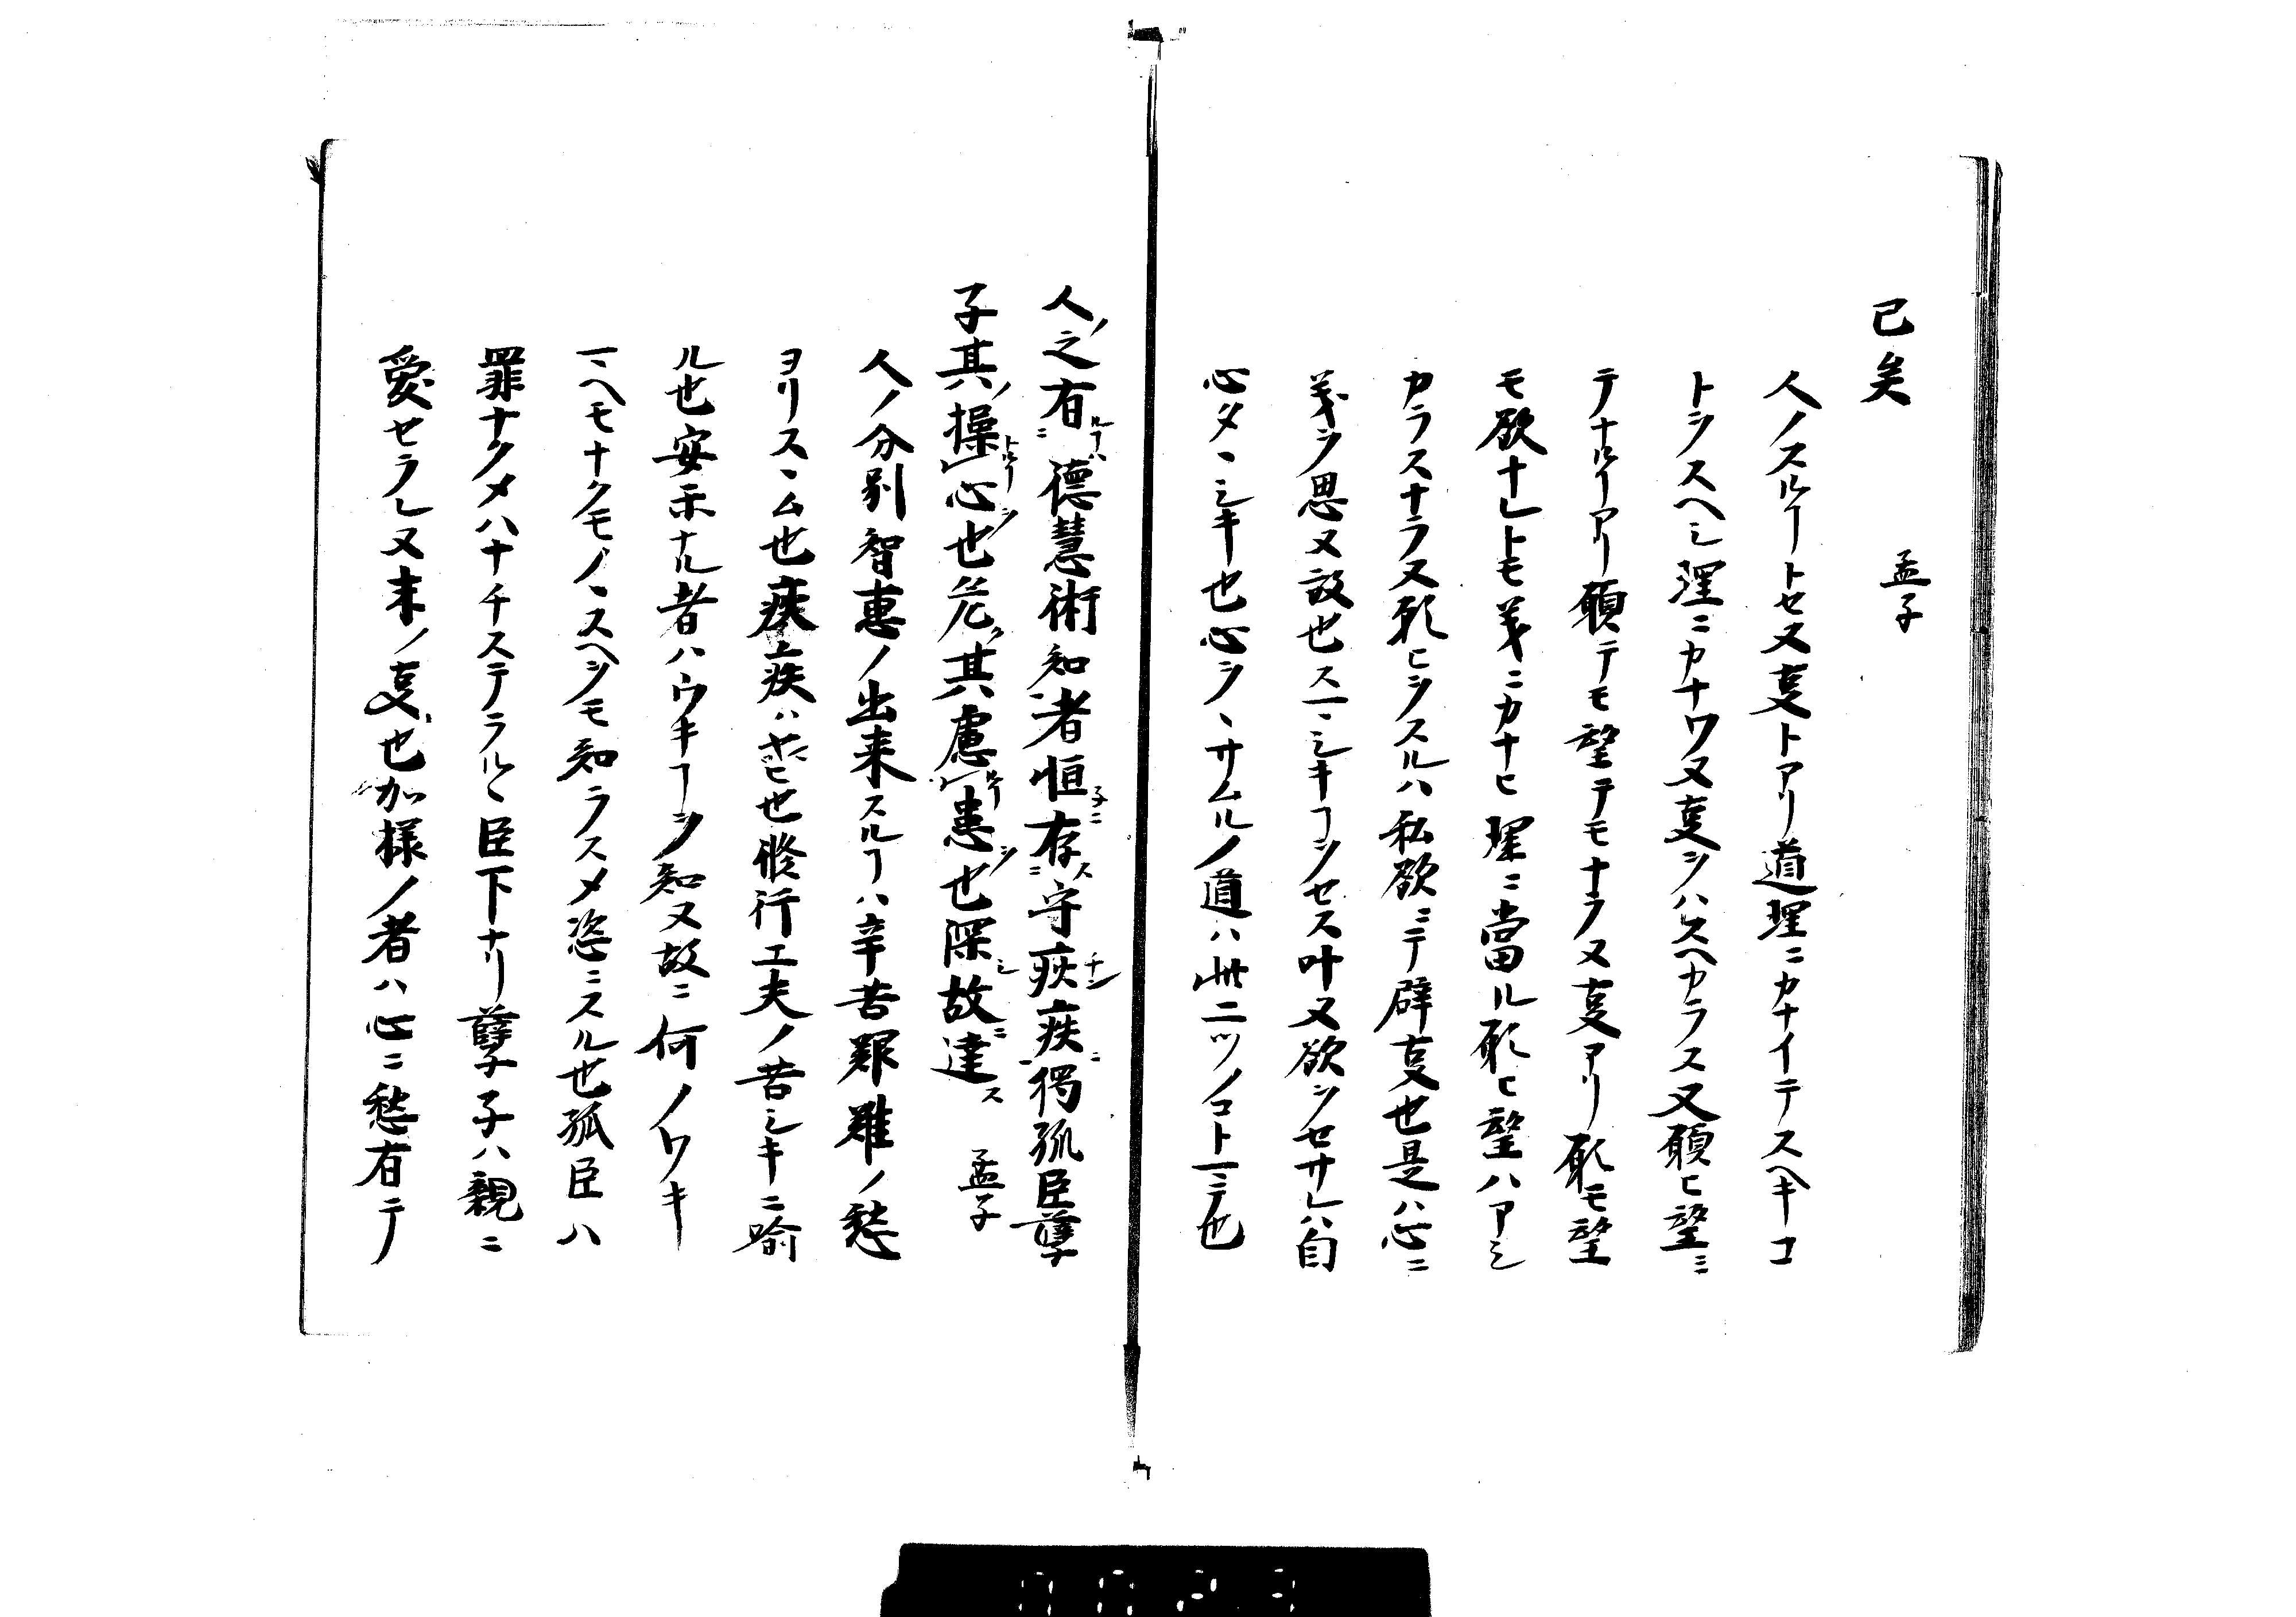 已矣　　　孟子
人ノスルヿトセヌ㕝トアリ道理ニカナイテスヘキコ
トヲスヘシ理ニカナワヌ㕝ヲハスヘカラス又願ヒ望ミ
テナルヿアリ願テモ望テモナラヌ㕝アリ願モ望
モ欲ナレトモ義ニカナヒ理ニ當ル願ヒ望ハアシ
カラスナラヌ願ヒヲスルハ私欲ニテ辟㕝也是ハ心ニ
義ヲ思又故也スマシキヿヲセス叶又欲ヲセサレハ自
心タヽシキ也心ヲヽサムルノ道ハ此二ツノコトマテ也
人之有德慧術知者恒存守疢疾獨孤臣孼
子其操心也危其慮患也深故達　孟子
人ノ分別智恵ノ出来スルヿハ辛苦艱難ノ愁
ヨリスヽム也疢疾ハヤマヒ也修行工夫ノ苦シキニ喩
ル也安楽ナル者ハウキヿヲ知又故ニ何ノワキ
マヘモナクモノヽスヘヲモ知ラスメ恣ニスル也孤臣ハ
罪ナクメハナチステラルヽ臣下ナリ孼子ハ親ニ
愛セラレ又末ノ㕝也加様ノ者ハ心ニ愁有テ